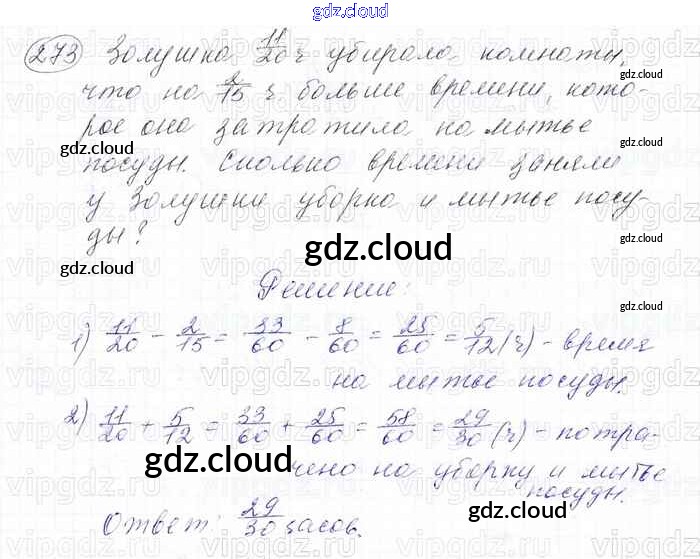 gdz.cloud
273 Золушка 11/20 ч убирала комнаты,
что на 2/15 ч больше времени, кото-
рое она затратила на мытье
посуды. Сколько времени заняли
у Золушки уборка и мытье посу-
ды?
Решение:
1) 11/20 - 2/15 = 33/60 - 8/60 = 25/60 = 5/12 (ч) - время
на мытье посуды.
2) 11/20 + 5/12 = 33/60 + 25/60 = 58/60 = 29/30 (ч) - потра-
чено на уборку и мытье
посуды.
Ответ: 29/30 часов.
gdz.cloud
vipgdz.ru